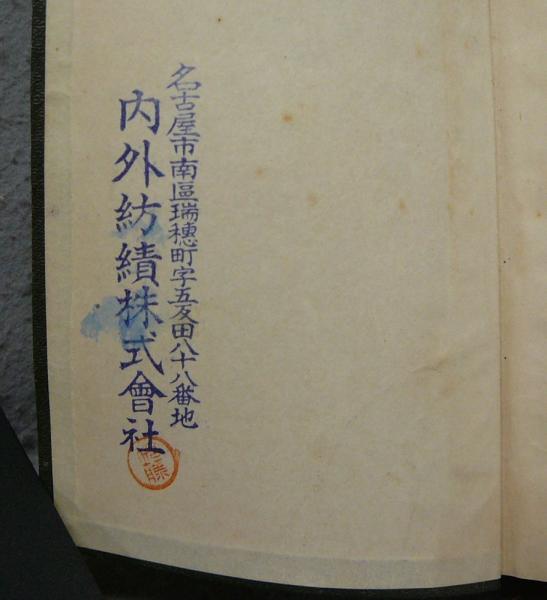 名古屋市南區瑞穗町字五反田八十八番地
内外紡績株式會社